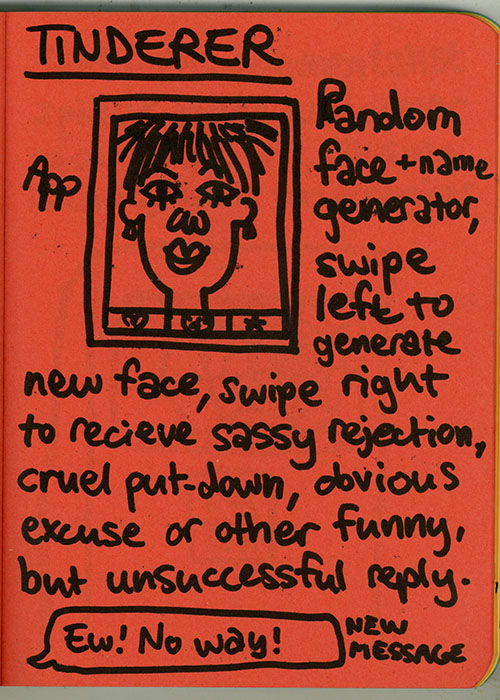 TINDERER
App
Random
face + name
generator,
swipe
left to
generate
new face, swipe right
to recieve sassy rejection,
cruel put-down, obvious
excuse or other funny,
but unsuccessful reply.
Ew! No way!
NEW
MESSAGE